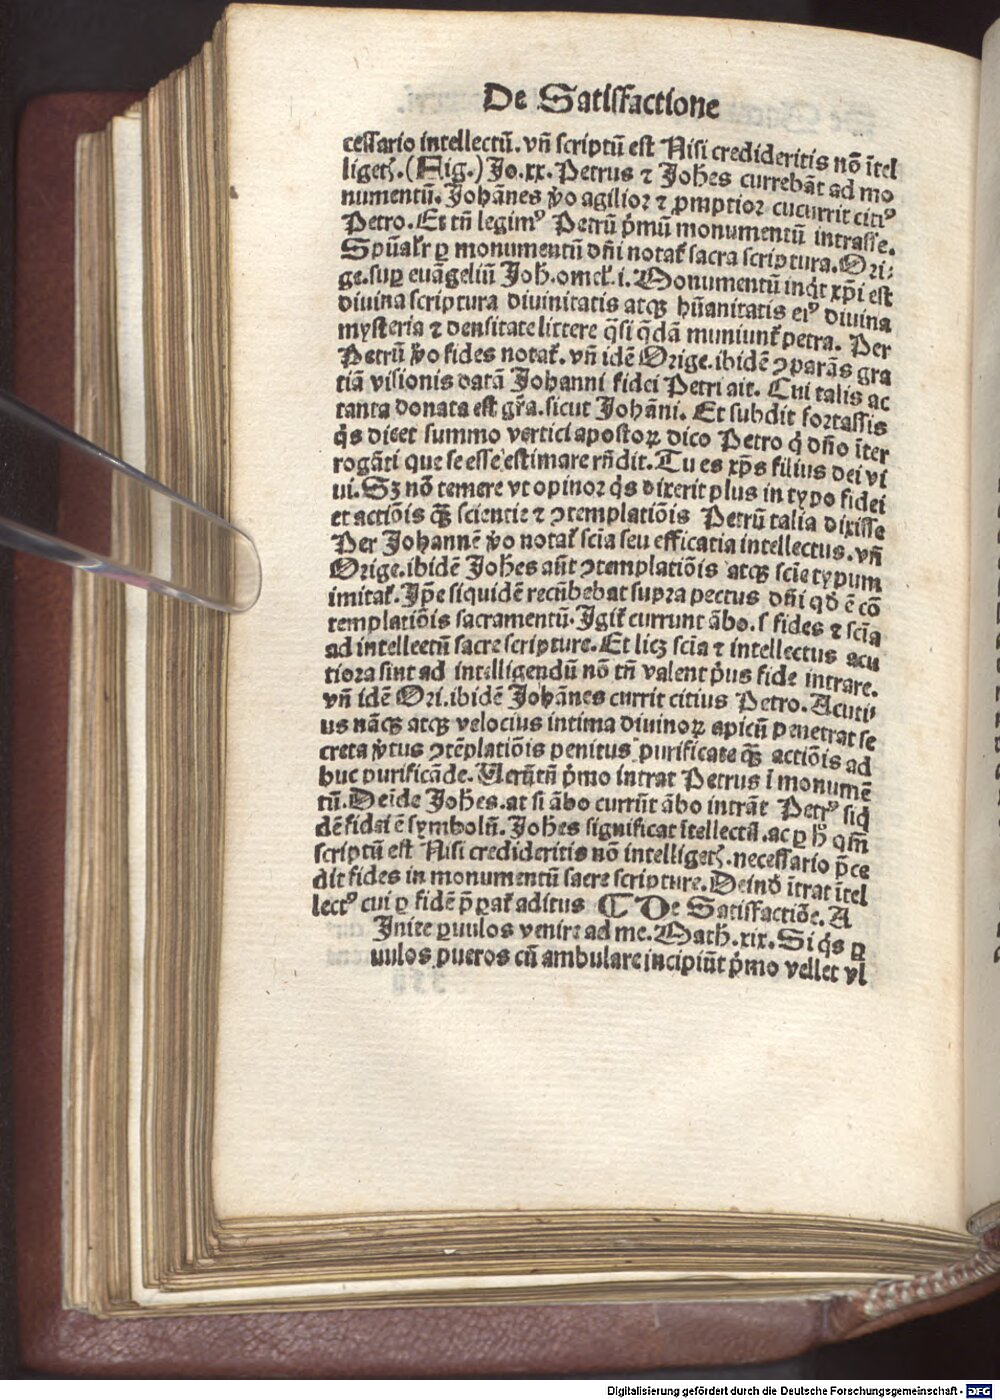 De Satisfactione
cessario intellectū. vn̄ scriptū est Nisi credideritis nō ītel
ligetꝭ. (Fig.) Jo. xx. Petrus ⁊ Joh̄es currebāt ad mo
numentū. Johānes ꝟo agilior ⁊ ꝓmptior cucurrit citiꝰ
Petro. Et tn̄ legimꝰ Petrū p̄mū monumentū intrasse.
Spūalr̄ ꝑ monumentū dn̄i notat᷑ sacra scriptura. Ori⸗
ge. suꝑ euāgeliū Joh̄. omel̄. i. Monumentū inq̇t xp̄i est
diuina scriptura diuinitatis atqꝫ hūanitatis eiꝰ diuina
mysteria ⁊ densitate littere q̄si q̄dā muniunt᷑ petra. Per
Petrū ꝟo fides notat᷑. vn̄ idē Orige. ibidē ꝯparās gra
tiā visionis datā Johanni fidei Petri ait. Cui talis ac
tanta donata est gr̄a. sicut Johāni. Et subdit fortassis
q̇s dicet summo vertici apostoꝝ dico Petro q̇ dn̄o īter
rogāti que se esse estimare rn̄dit. Tu es xp̄s filius dei vi
ui. Sꝫ nō temere vt opinor q̇s dixerit plus in typo fidei
et actiōis q̄ꝫ scientie ⁊ ꝯtemplatiōis Petrū talia dixisse
Per Johannē ꝟo notat᷑ scia seu efficatia intellectus. vn̄
Orige. ibidē Joh̄es aūt ꝯtemplatiōis atqꝫ scīe typum
imitat᷑. Ip̄e siquidē recūbebat supra pectus dn̄i qḋ ē cō
templatiōis sacramentū. Igit᷑ currunt ābo. s fides ⁊ scīa
ad intellectū sacre scripture. Et licꝫ scīa ⁊ intellectus acu
tiora sint ad intelligendū nō tn̄ valent p̄us fide intrare.
vn̄ idē Ori. ibidē Johānes currit citius Petro. Acuti⸗
us nāqꝫ atqꝫ velocius intima diuinoꝝ apicū penetrat se
creta ꝟtus ꝯtēplatiōis penitus purificate q̄ꝫ actiōis ad
huc purificāde. Verūtn̄ p̄mo intrat Petrus ī monumē
tū. Deīde Joh̄es. at si ābo currūt ābo intrāt Petrꝰ siq̇
dē fidei ē symbolū. Joh̄es significat ītellectū. ac ꝑ h̄ qm̄
scriptū est Nisi credideritis nō intelligetꝭ. necessario p̄ce
dit fides in monumentū sacre scripture. Deinḋ ītrat ītel
lectꝰ cui ꝑ fidē p̄ꝑat᷑ aditus ¶ De Satisfactiōe. A
Inite ꝑuulos venire ad me. Math̄. xix. Si q̇s ꝑ
uulos pueros cū ambulare incipiūt p̄mo vellet vl
Digitalisierung gefördert durch die Deutsche Forschungsgemeinschaft - DFG